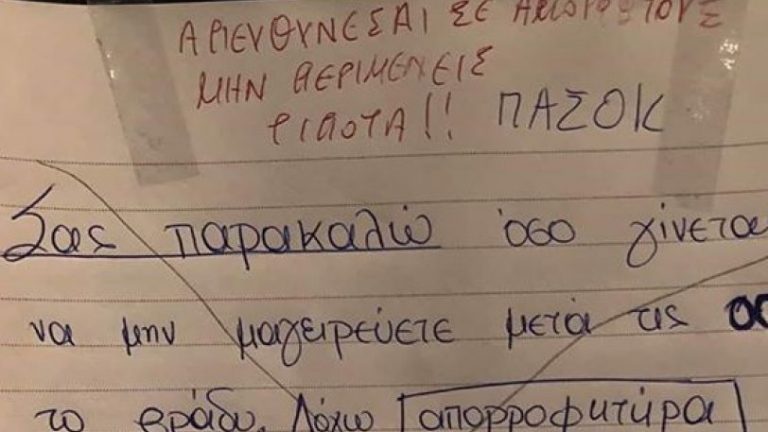 ΑΠΕΥΘΥΝΕΣΑΙ ΣΕ ΤΟΥΣ
ΜΗΝ ΠΕΡΙΜΕΝΕΙΣ
ΤΙΠΟΤΑ!! ΠΑΣΟΚ
Σας παρακαλώ όσο γίνεται
να μην μαγειρεύετε μετά τις
το βράδυ. Λόγω απορροφητήρα